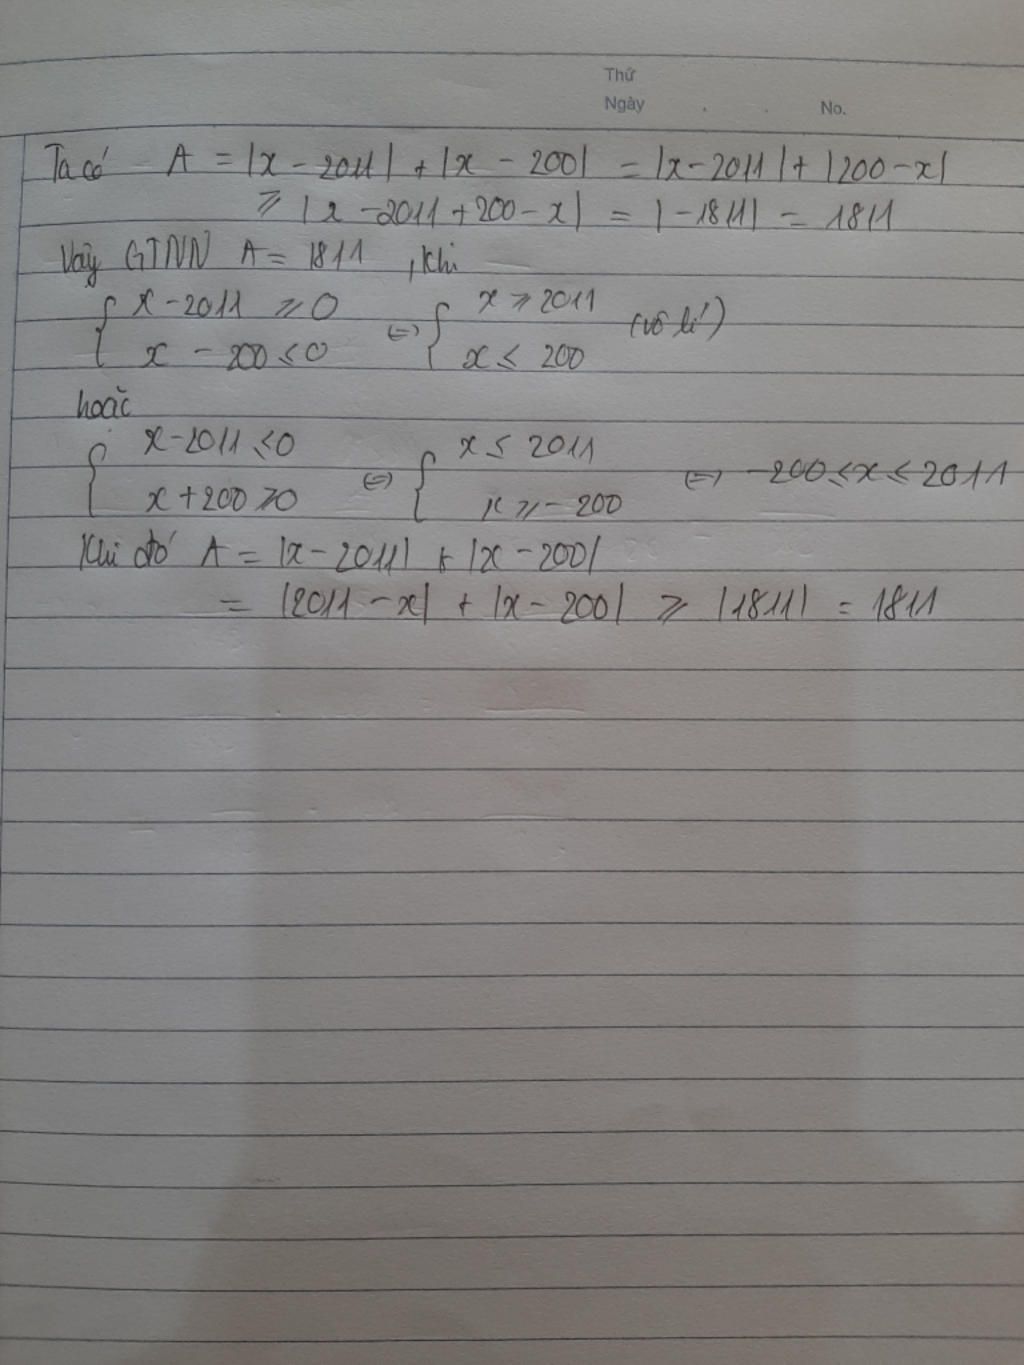 Thứ
Ngày . . No.
Ta có A = |x - 2011| + |x - 200| = |x-2011| + |200-x|
≥ |x-2011+200-x| = |-1811| = 1811
Vậy GTNN A = 1811 , khi
{ x-2011 ≥ 0 <=> { x ≥ 2011 (vô lí)
x - 200 ≤ 0 x ≤ 200
hoặc
{ x-2011 ≤ 0 <=> { x ≤ 2011 <=> -200 ≤ x ≤ 2011
x+200 ≥ 0 x ≥ -200
Khi đó A = |x-2011| + |x-200|
= |2011-x| + |x-200| ≥ |1811| = 1811